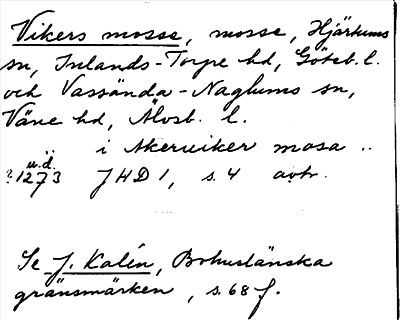 Vikers mosse, mosse, Hjärtums
sn, Inlands-Torpe hd, Göteb. l.
och Vassända-Naglums sn,
Väne hd, Älvsb. l.
i Akerwiker mosa ..
u.d.
?1273 JHD 1, s. 4 avtr.
Se J. Kalén, Bohuslänska
gränsmärken, s. 68 f.